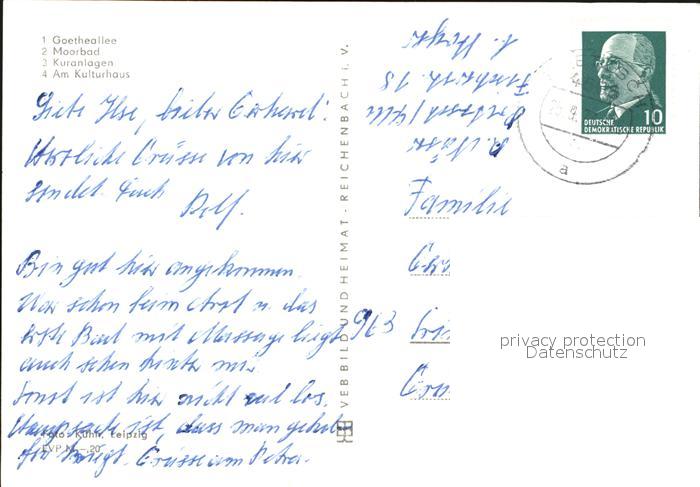 1 Goetheallee
2 Moorbad
3 Kuranlagen
4 Am Kulturhaus
Liebe Ilse, lieber Gerhard!
Herzliche Grüsse von hier
sendet Euch
Rolf.
Bin gut hier angekommen.
War schon beim Arzt u. das
erste Bad mit Massage liegt
auch schon hinter mir.
Sonst ist hier nicht viel los.
Hauptsache ist, dass man gehol-
fen kriegt. Grüsse an Petra.
Foto: Kuhn, Leipzig
EVP M -,20
VEB BILD UND HEIMAT · REICHENBACH i. V.
Familie
963
DEUTSCHE
DEMOKRATISCHE REPUBLIK
10
a
privacy protection
Datenschutz